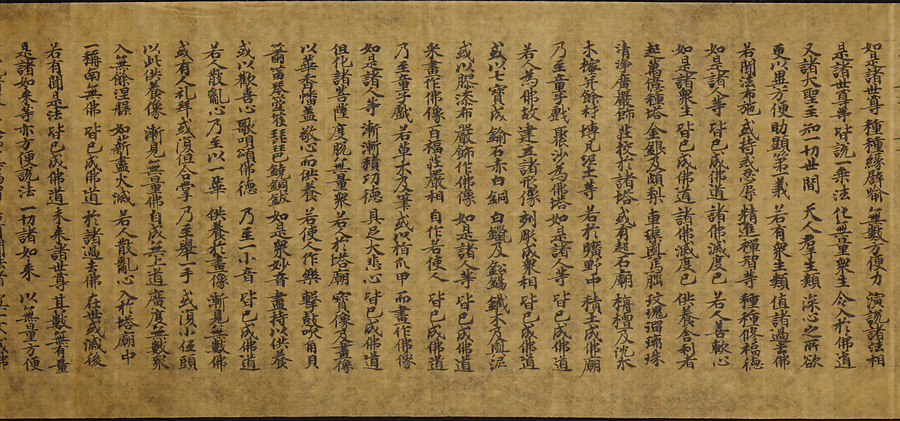 如是諸世尊 種種緣譬喻 無數方便力 演說諸法相
是諸世尊等 皆說一乘法 化無量眾生 令入於佛道
又諸大聖主 知一切世間 天人群生類 深心之所欲
更以異方便 助顯第一義 若有眾生類 值諸過去佛
若聞法布施 或持戒忍辱 精進禪智等 種種修福德
如是諸人等 皆已成佛道 諸佛滅度已 若人善軟心
如是諸眾生 皆已成佛道 諸佛滅度已 供養舍利者
起萬億種塔 金銀及頗梨 車璩與馬瑙 玫瑰瑠璃珠
清淨廣嚴飾 莊校於諸塔 或有起石廟 栴檀及沈水
木櫁并餘材 塼瓦泥土等 若於曠野中 積土成佛廟
乃至童子戲 聚沙為佛塔 如是諸人等 皆已成佛道
若人為佛故 建立諸形像 刻彫成眾相 皆已成佛道
或以七寶成 鍮石赤白銅 白鑞及鉛錫 鐵木及與泥
或以膠漆布 嚴飾作佛像 如是諸人等 皆已成佛道
采畫作佛像 百福莊嚴相 自作若使人 皆已成佛道
乃至童子戲 若草木及筆 或以指爪甲 而畫作佛像
如是諸人等 漸漸積功德 具足大悲心 皆已成佛道
但化諸菩薩 度脫無量眾 若人於塔廟 寶像及畫像
以華香幡蓋 敬心而供養 若使人作樂 擊鼓吹角貝
簫笛琴箜篌 琵琶鐃銅鈸 如是眾妙音 盡持以供養
或以歡喜心 歌唄頌佛德 乃至一小音 皆已成佛道
若人散亂心 乃至以一華 供養於畫像 漸見無數佛
或有人禮拜 或復但合掌 乃至舉一手 或復小低頭
以此供養像 漸見無量佛 自成無上道 廣度無數眾
入無餘涅槃 如薪盡火滅 若人散亂心 入於塔廟中
一稱南無佛 皆已成佛道 於諸過去佛 在世或滅後
若有聞是法 皆已成佛道 未來諸世尊 其數無有量
是諸如來等 亦方便說法 一切諸如來 以無量方便